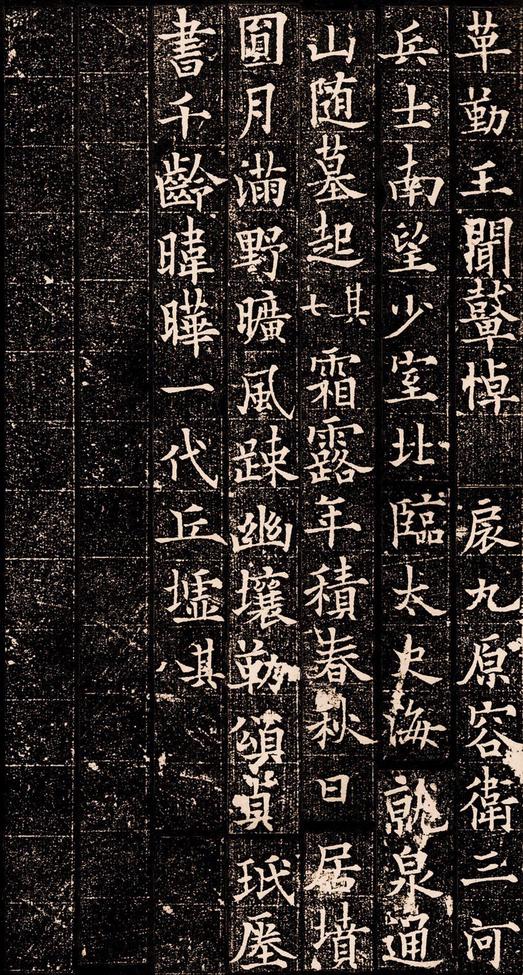 革勤王聞鼙悼 扆九原容衛三河
兵士南望少室北臨太史海就泉通
山随墓起其七霜露年積春秋日居墳
圓月滿野曠風踈幽壤勒頌貞珉屢
書千齡暐曄一代丘墟其八